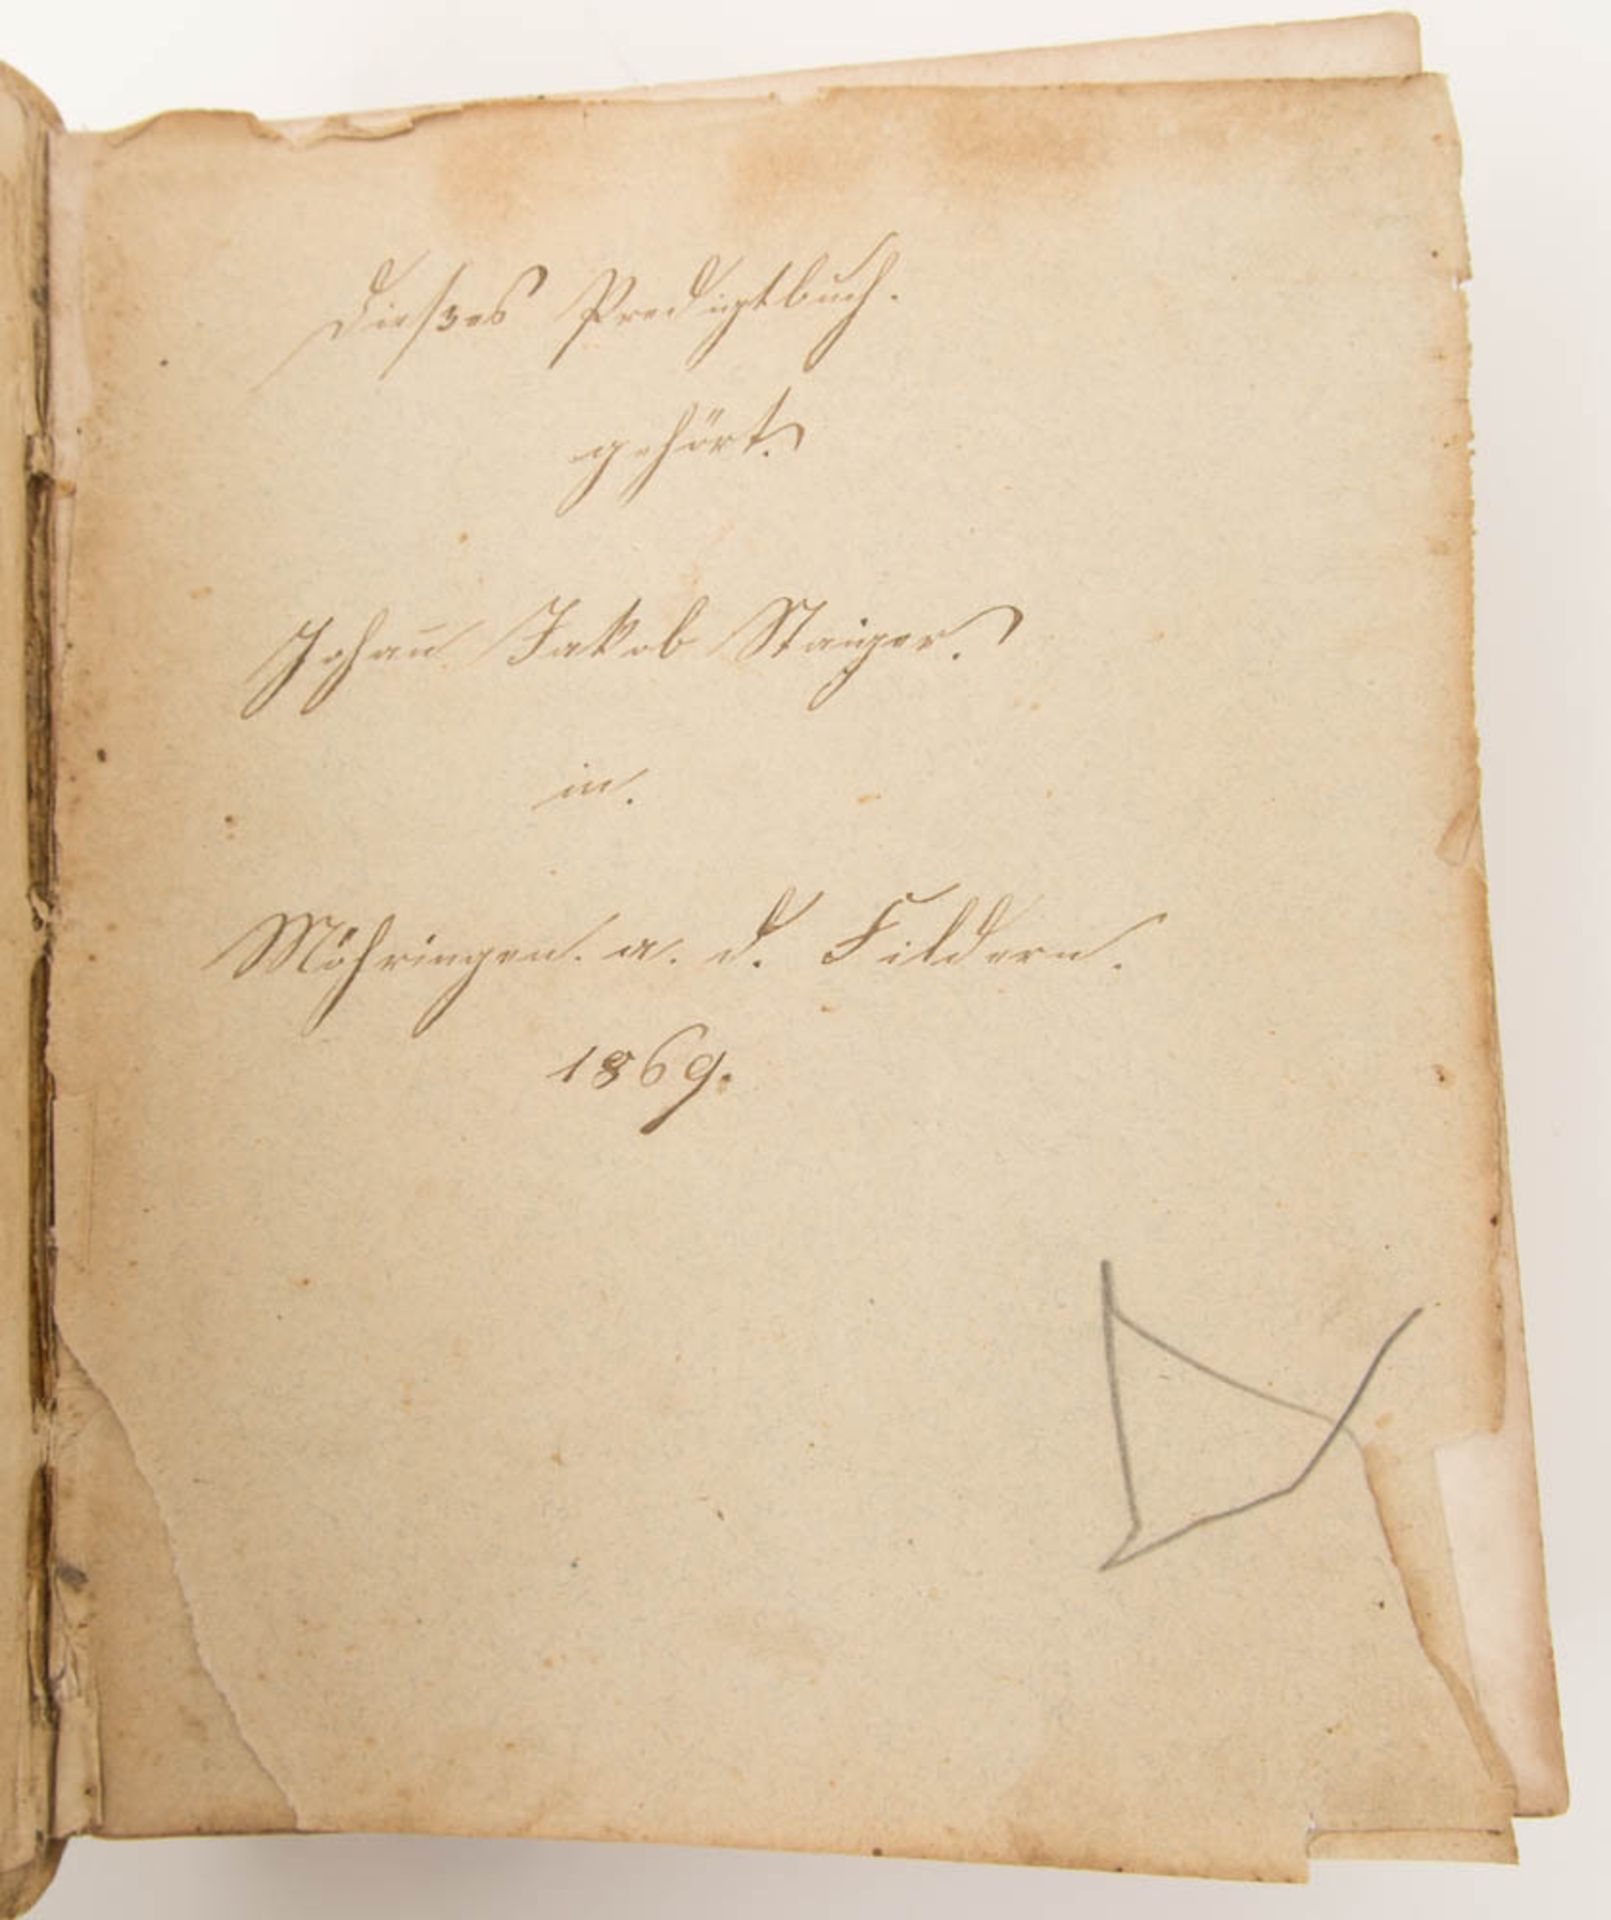 Dießes Predigtbuch.
gehört.
Johan̄ Jakob Staiger.
in.
Möhringen. a. d. Fildern.
1869.